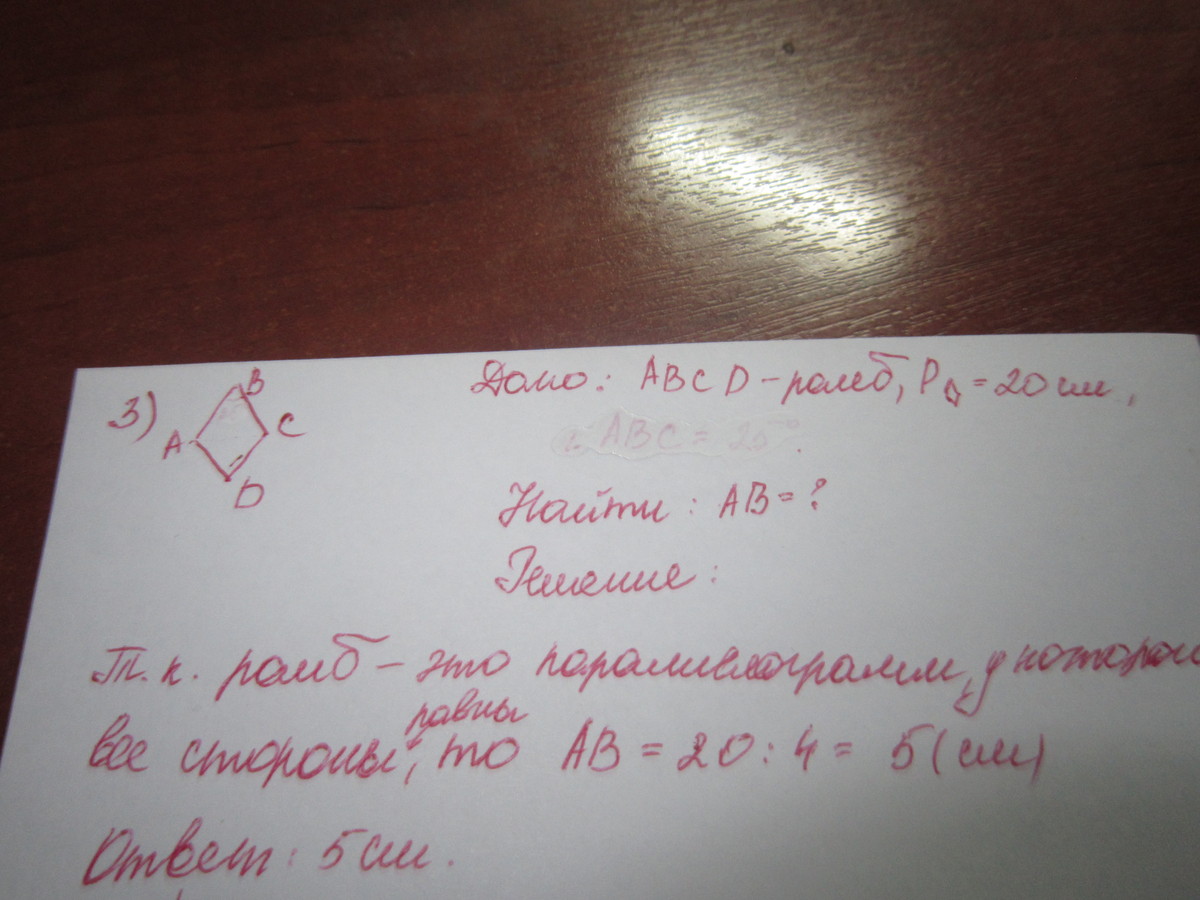 3)
B
A
C
D
Дано: ABCD – ромб, P◊ = 20 см,
∠ ABC = 20°.
Найти: AB = ?
Решение:
Т.к. ромб – это параллелограмм, у которого
равны
все стороны, то AB = 20 : 4 = 5 (см)
Ответ: 5 см.